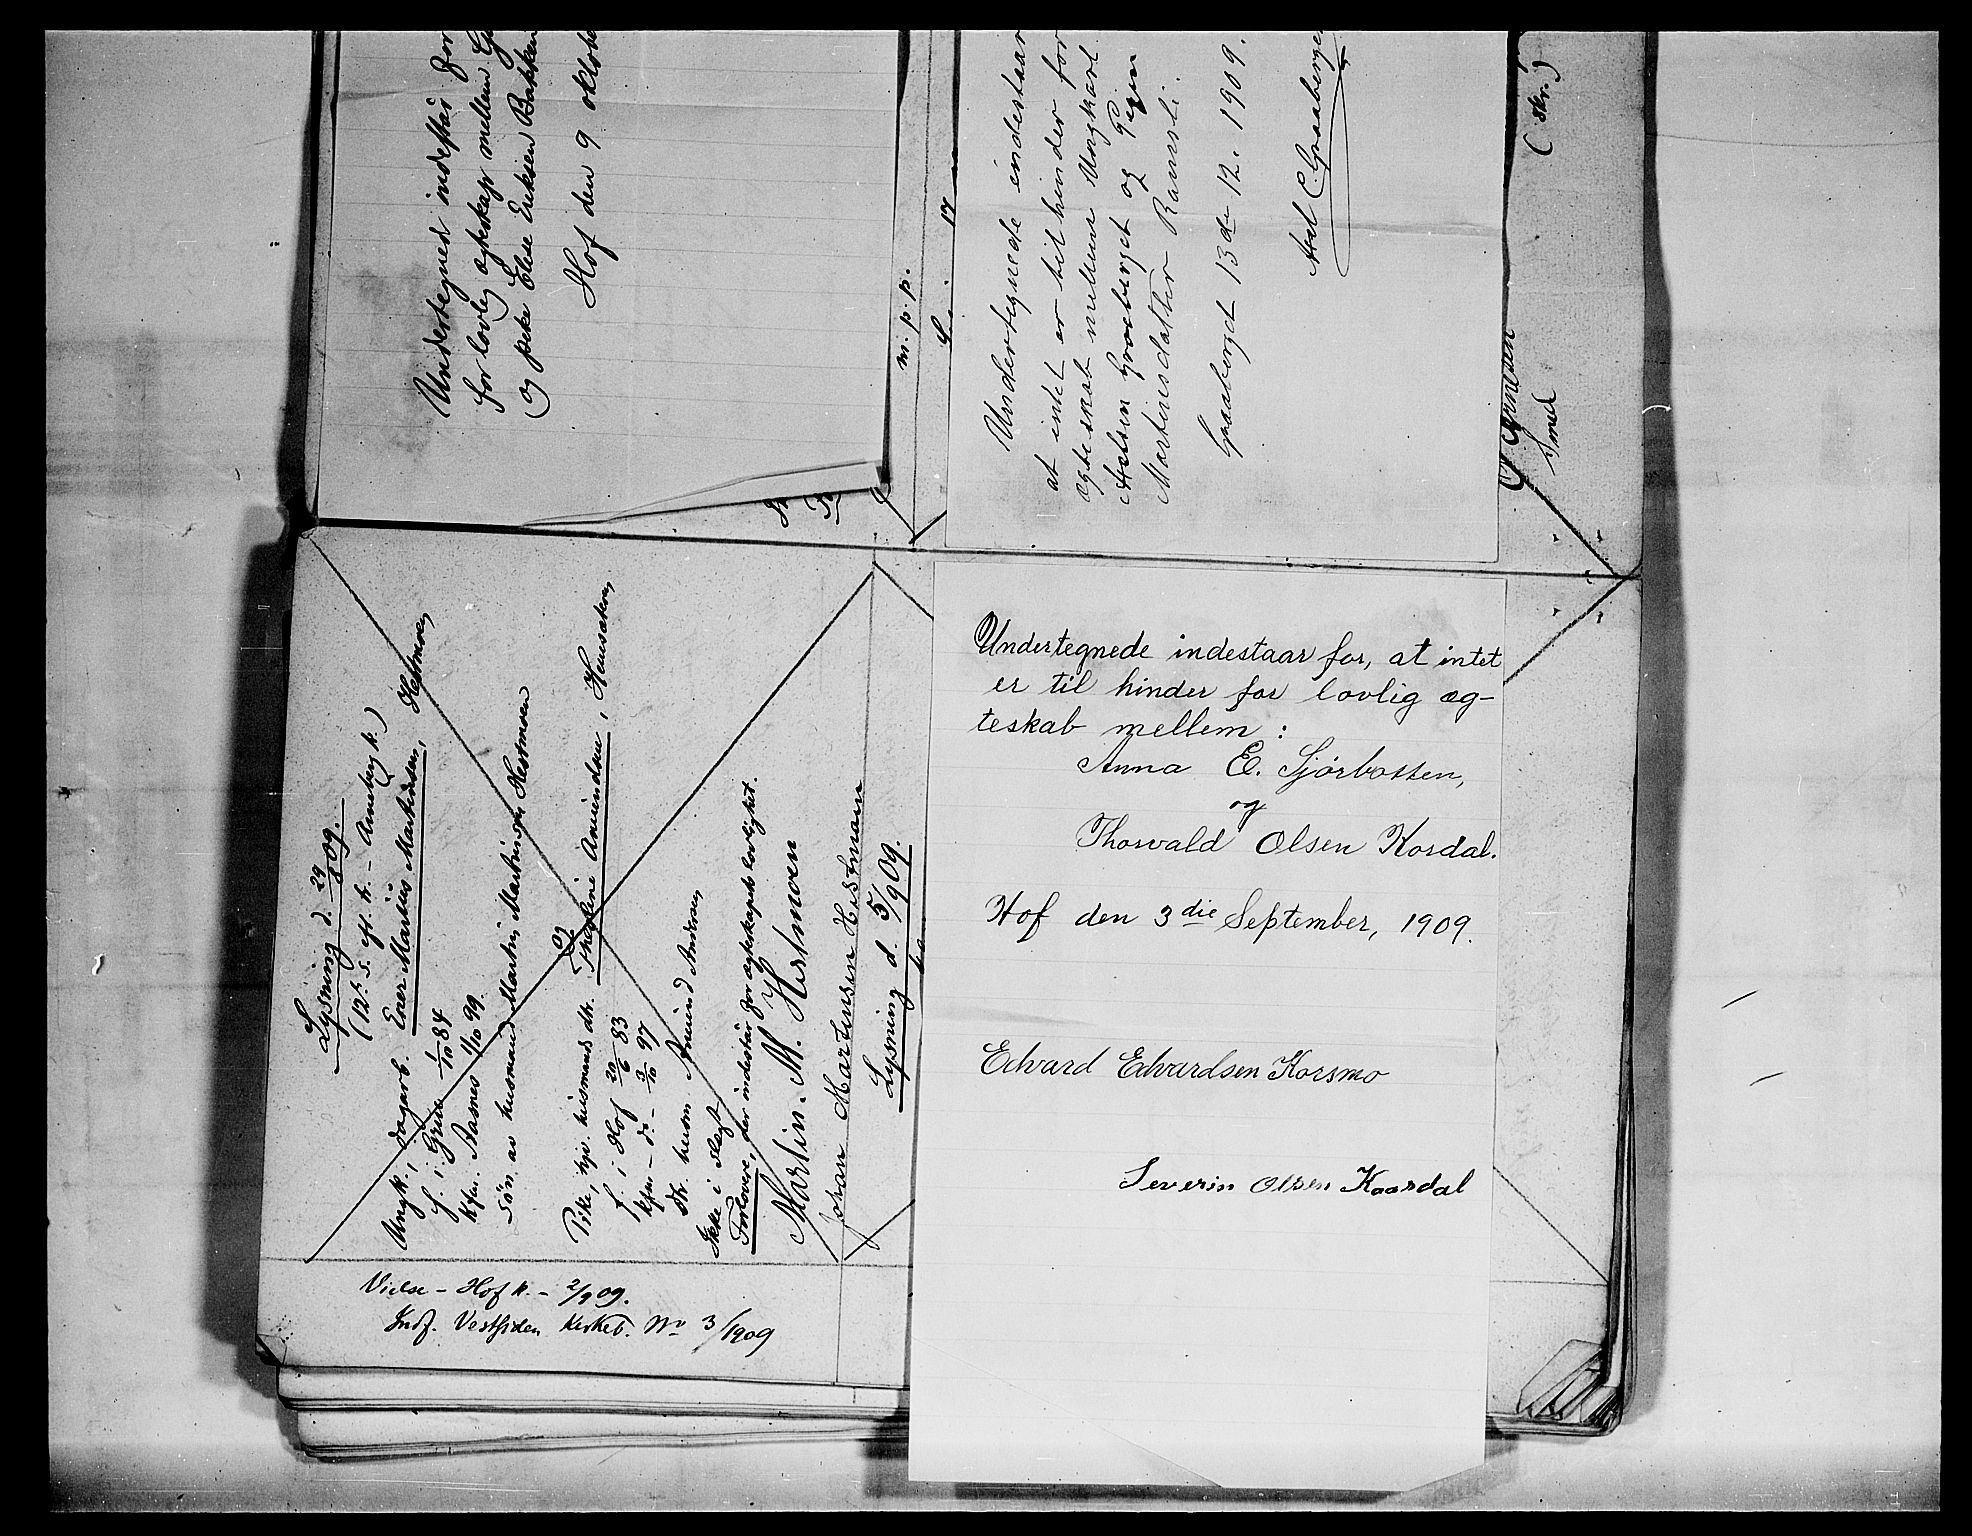 Undertegned indestår for
for lovlig ægteskap mellem
og pike Elise Eriksen Bakken
Hof den 9 oktobe
m. p. p.
17
Undertegnede indestaar
at intet er til hinder for
ægteskab mellem Ungkarl
Axelsen Graaberget og Pigen
Martinsdatter Ramsli.
Graaberget 13de 12. 1909.
Axel C. Graaberge
(skr.)
Smed
Lysning d. 29/8 09.
(12te S. eft. tr. – Arneberg k.)
Ungk., dagarb. Einar Marius Martinsen, Hestmoen
f. i Grue 1/10 84
kfm. Aasnes 1/10 99.
Søn av husmand Martin Martinsen Hestmoen
og
Pike, hjv. husmands dtr. Amundsen,
f. i Hof 20/6 83
kfm – do – 3/10 97
dtr. husm. Amund Andersen
Ikke i slegt
Forlovere, der indestår for ægteskapets lovlighet.
Martin. M. Hestmoen
Johan Martinsen Hestmoen
Lysning d. 5/9 09.
Vielse – Hof k. – 2/9 09.
Indf. Vestsiden Kirkeb. No 3/1909
Undertegnede indestaar for, at intet
er til hinder for lovlig æg-
teskab mellem :
Anna E. Sjørbotten,
og
Thorvald Olsen Kordal.
Hof den 3die September, 1909.
Edvard Edvardsen Korsmo
Severin Olsen Kaardal